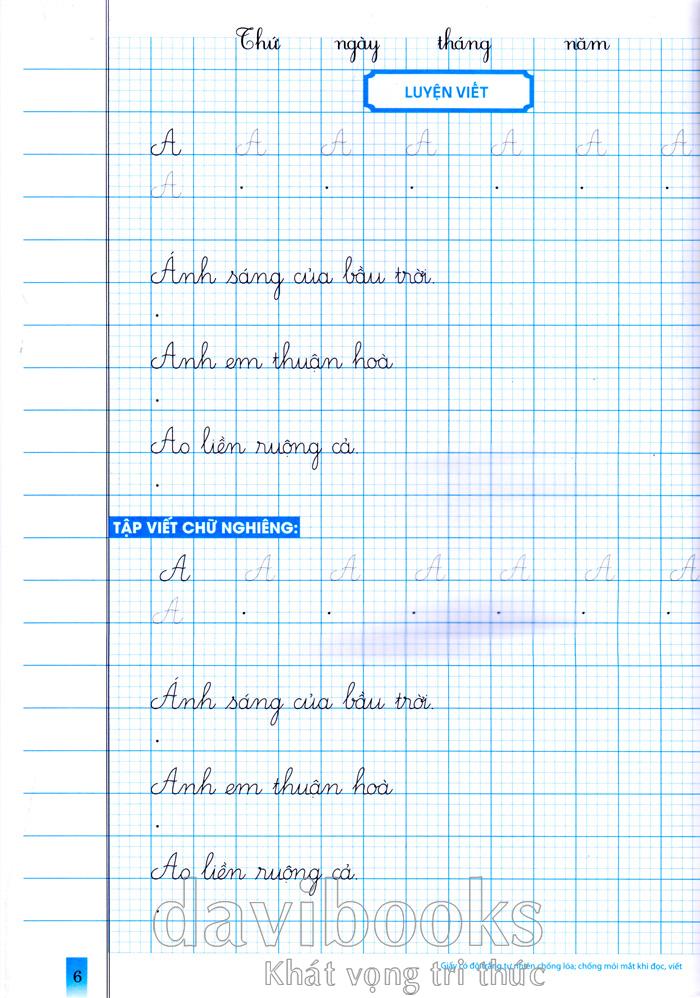 Thứ ngày tháng năm
LUYỆN VIẾT
A A A A A A A
A
Ánh sáng của bầu trời.
Anh em thuận hoà
Ao liền ruộng cả.
TẬP VIẾT CHỮ NGHIÊNG:
A A A A A A A
A
Ánh sáng của bầu trời.
Anh em thuận hoà
Ao liền ruộng cả.
davibooks
Khát vọng tri thức
Giấy có độ trắng tự nhiên chống lóa; chống mỏi mắt khi đọc, viết
6